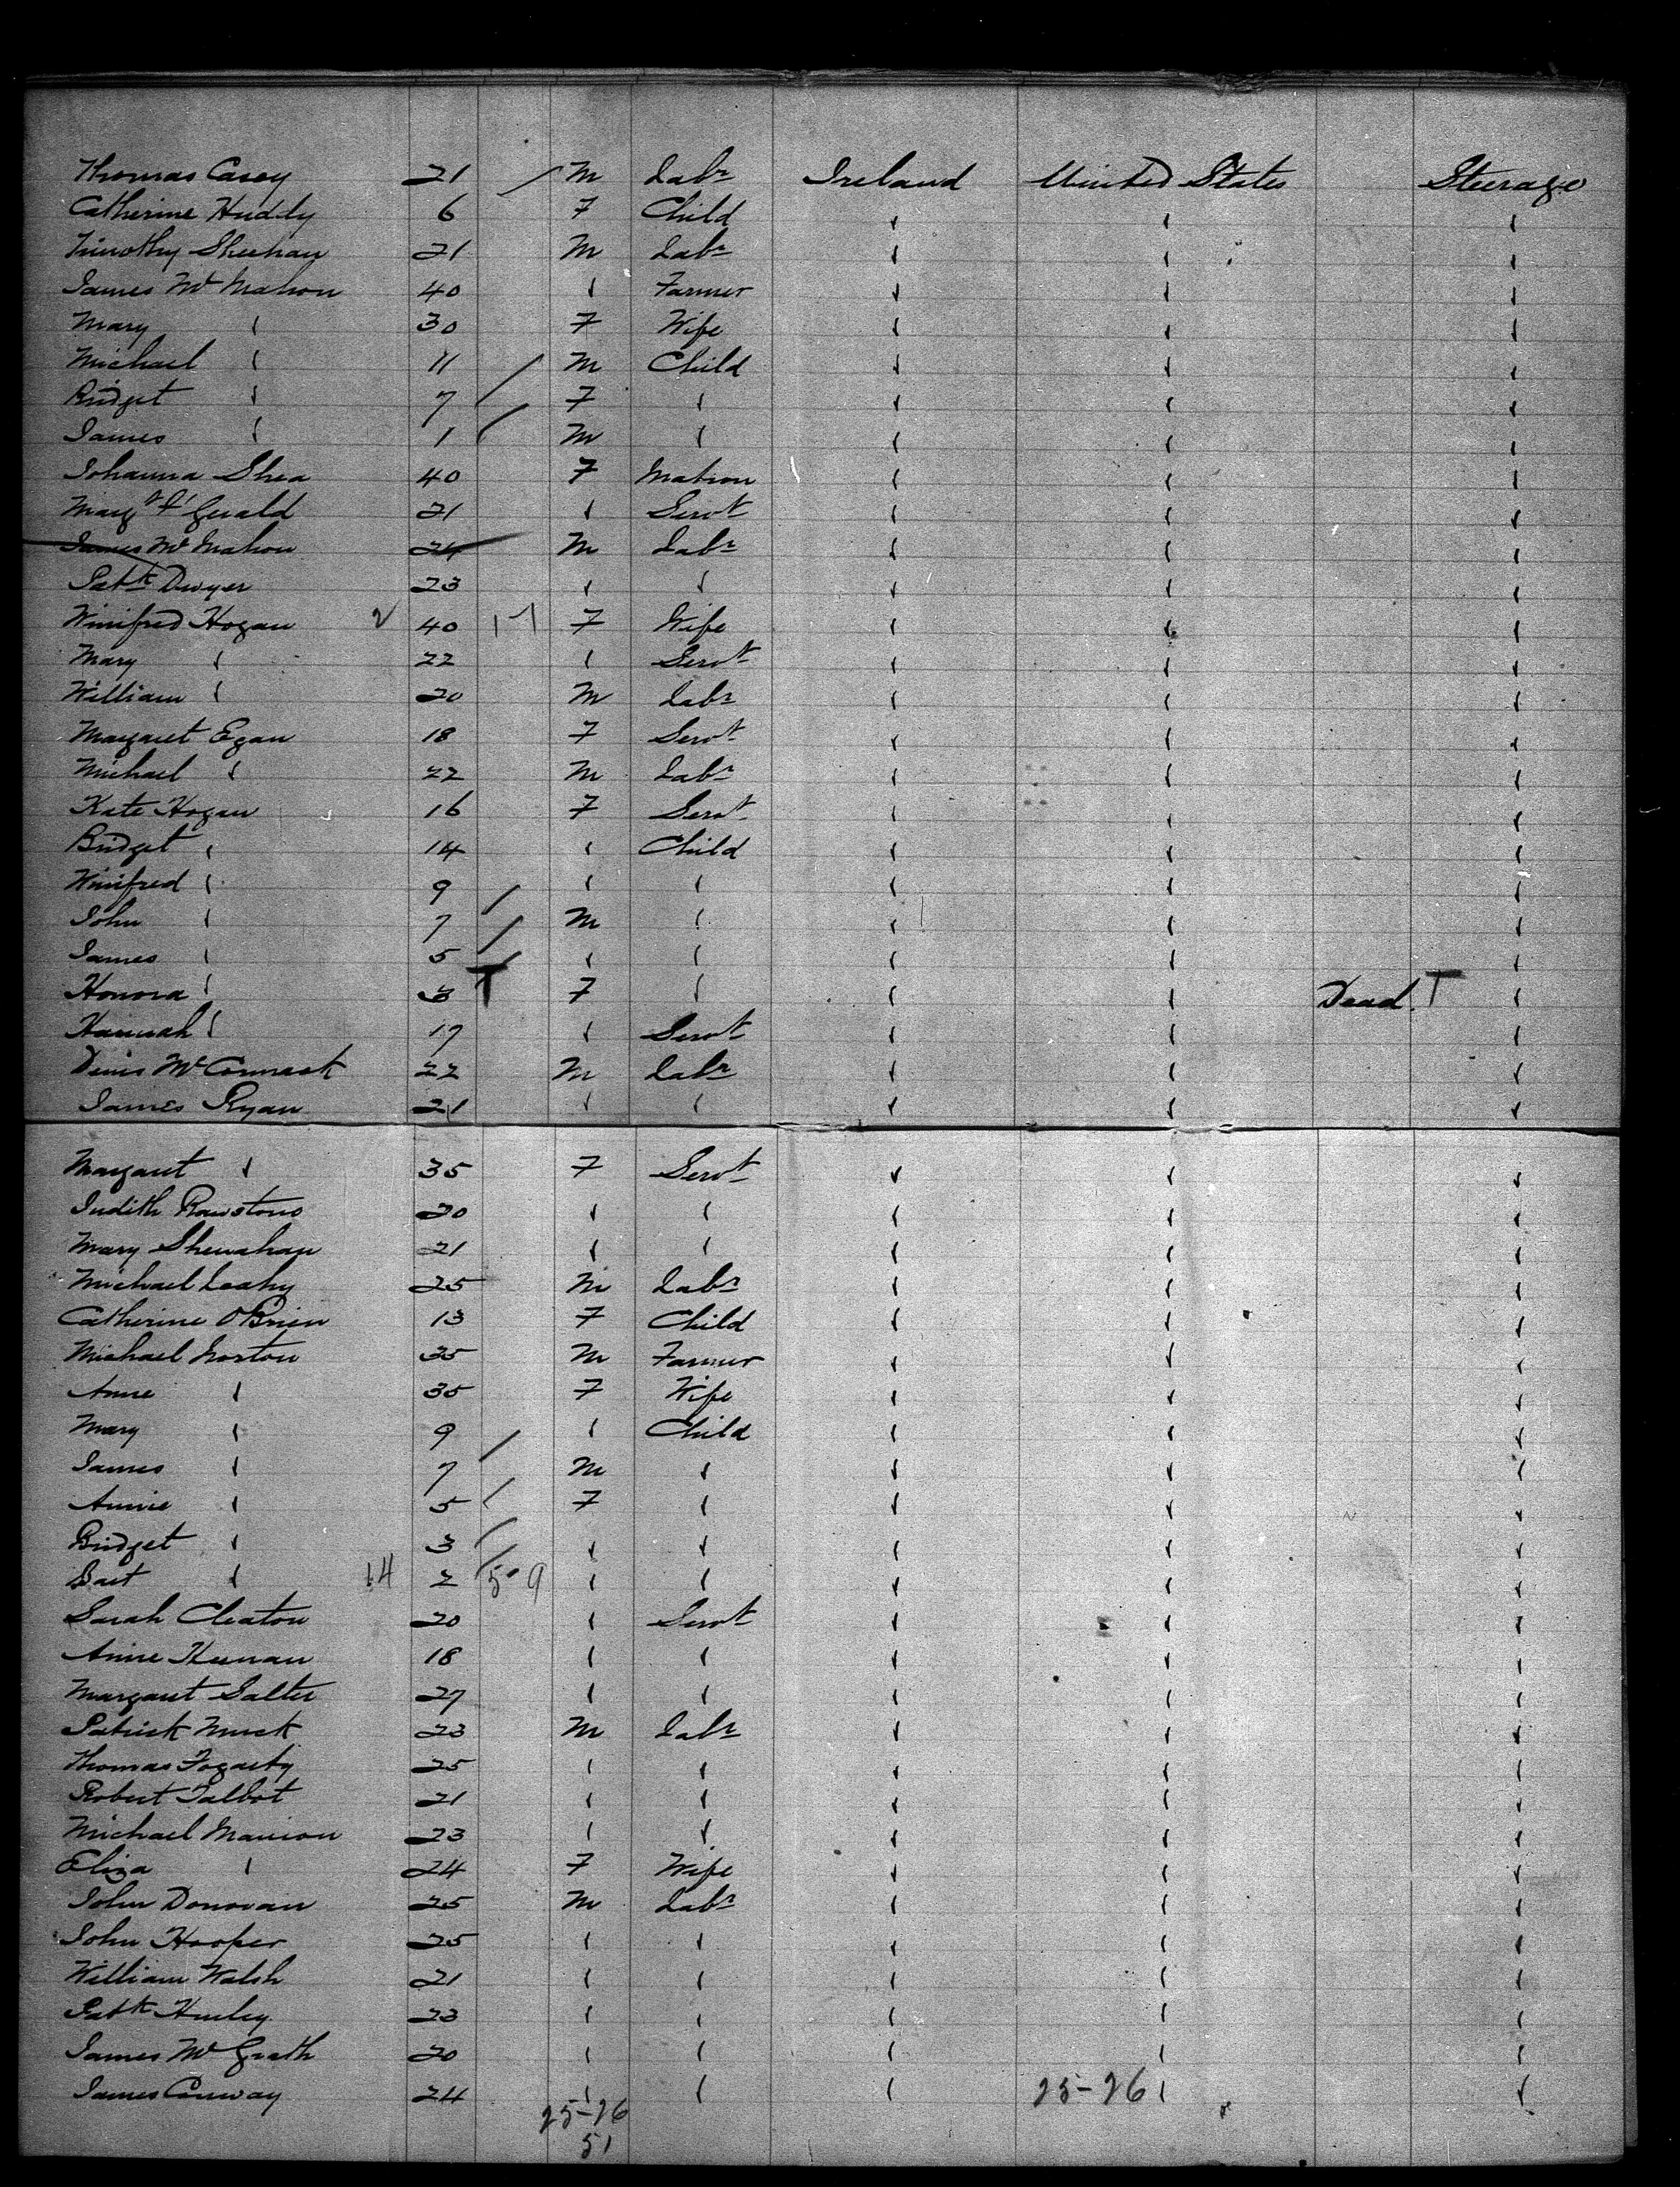 Thomas Casey 21 / M Labr Ireland United States Steerage
Catherine Huddy 6 F Child " " "
Timothy Sheehan 21 M Labr " " "
James McMahon 40 " Farmer " " "
Mary " 30 F Wife " " "
Michael " 11 / M Child " " "
Bridget " 7 / F " " " "
James " 1 M " " " "
Johanna Shea 40 F Matron " " "
Mary Ftz Gerald 21 " Servt " " "
James McMahon 24 M Labr " " "
Patk Dwyer 23 " " " " "
Winifred Hogan 2 40 17 F Wife " " "
Mary " 22 " Servt " " "
William " 20 M Labr " " "
Margaret Egan 18 F Servt " " "
Michael " 22 M Labr " " "
Kate Hogan 16 F Servt " " "
Bridget " 14 " Child " " "
Winifred " 9 / " " " " "
John " 7 / M " " " "
James " 5 / " " " " "
Honora " 3 T F " " " Dead. T "
Hannah " 17 " Servt " " "
Denis McCormack 22 M Labr " " "
James Ryan 21 " " " " "
Margaret " 35 F Servt " " "
Judith 20 " " " " "
Mary Shewahan 21 " " " " "
Michael Leahy 25 M Labr " " "
Catherine O'Brien 13 F Child " " "
Michael Norton 35 M Farmer " " "
Anne " 35 F Wife " " "
Mary " 9 / " Child " " "
James " 7 M " " " "
Annie " 5 / F " " " "
Bridget " 3 / " " " " "
" 14 2 / 5 9 " " " " "
Sarah Cleaton 20 " Servt " " "
Anne Keenan 18 " " " " "
Margaret Salter 27 " " " " "
Patrick 23 M Labr " " "
Thomas Fogarty 25 " " " " "
Robert Talbot 21 " " " " "
Michael Mannion 23 " " " " "
Eliza " 24 F Wife " " "
John Donovan 25 M Labr " " "
John Hooper 25 " " " " "
William Walsh 21 " " " " "
Patk Hurley 23 " " " " "
James McGrath 20 " " " " "
James Conway 24 " " " 25-26 " "
25-26
51